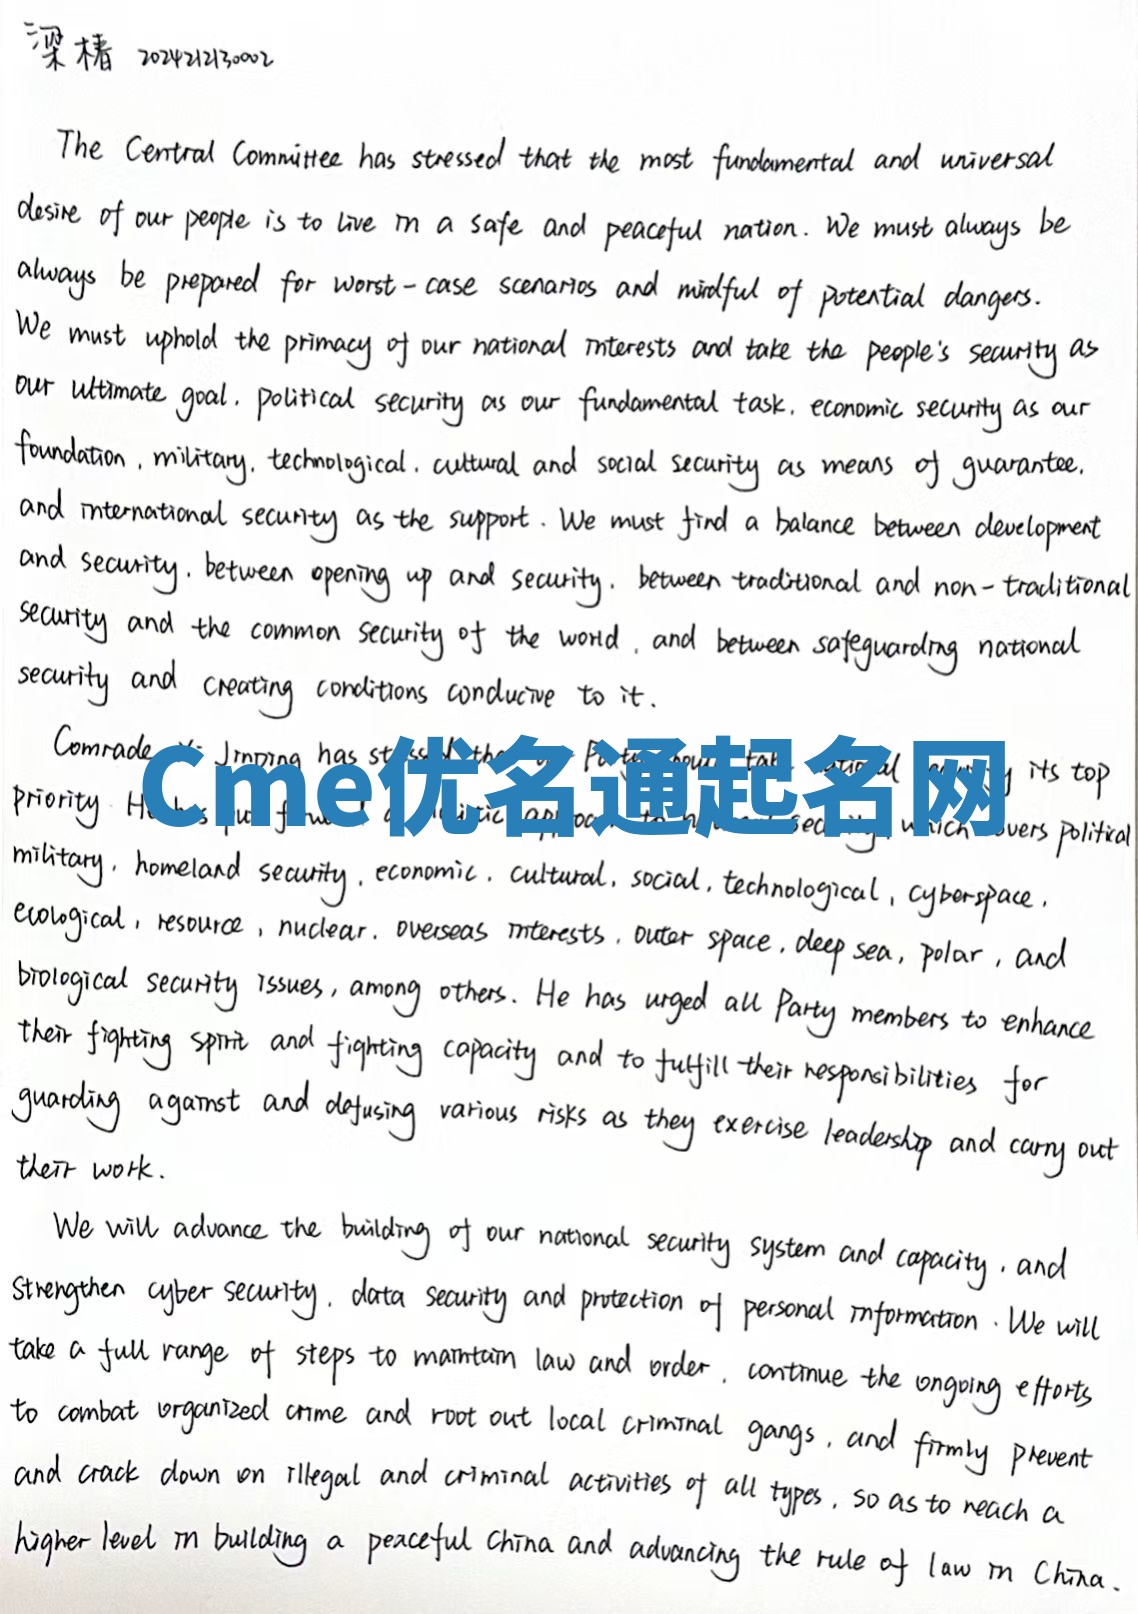 梁椿 2024212130002
The Central Committee has stressed that the most fundamental and universal
desire of our people is to live in a safe and peaceful nation. We must always be
always be prepared for worst-case scenarios and mindful of potential dangers.
We must uphold the primacy of our national interests and take the people's security as
our ultimate goal, political security as our fundamental task, economic security as our
foundation, military, technological, cultural and social security as means of guarantee,
and international security as the support. We must find a balance between development
and security, between opening up and security, between traditional and non-traditional
security and the common security of the world, and between safeguarding national
security and creating conditions conducive to it.
Comrade Jinping has its top
priority which political
Cme优名通起名网
military, homeland security, economic, cultural, social, technological, cyberspace,
ecological, resource, nuclear, overseas interests, outer space, deep sea, polar, and
biological security issues, among others. He has urged all Party members to enhance
their fighting spirit and fighting capacity and to fulfill their responsibilities for
guarding against and defusing various risks as they exercise leadership and carry out
their work.
We will advance the building of our national security system and capacity, and
strengthen cyber security, data security and protection of personal information. We will
take a full range of steps to maintain law and order, continue the ongoing efforts
to combat organized crime and root out local criminal gangs, and firmly prevent
and crack down on illegal and criminal activities of all types, so as to reach a
higher level in building a peaceful China and advancing the rule of law in China.